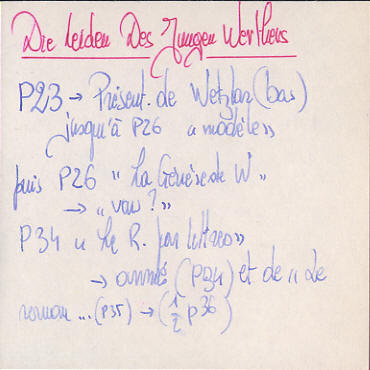 Die Leiden Des Jungen Werthers
P23 → Présent. de Wetzlar (bas)
jusqu'à P26 « modèle »
puis P26 " La Genèse de W "
→ "
P34 " Le R. par lettres »
→ année (P34) et de " Le
roman ... (P35) → (1/2 P36)